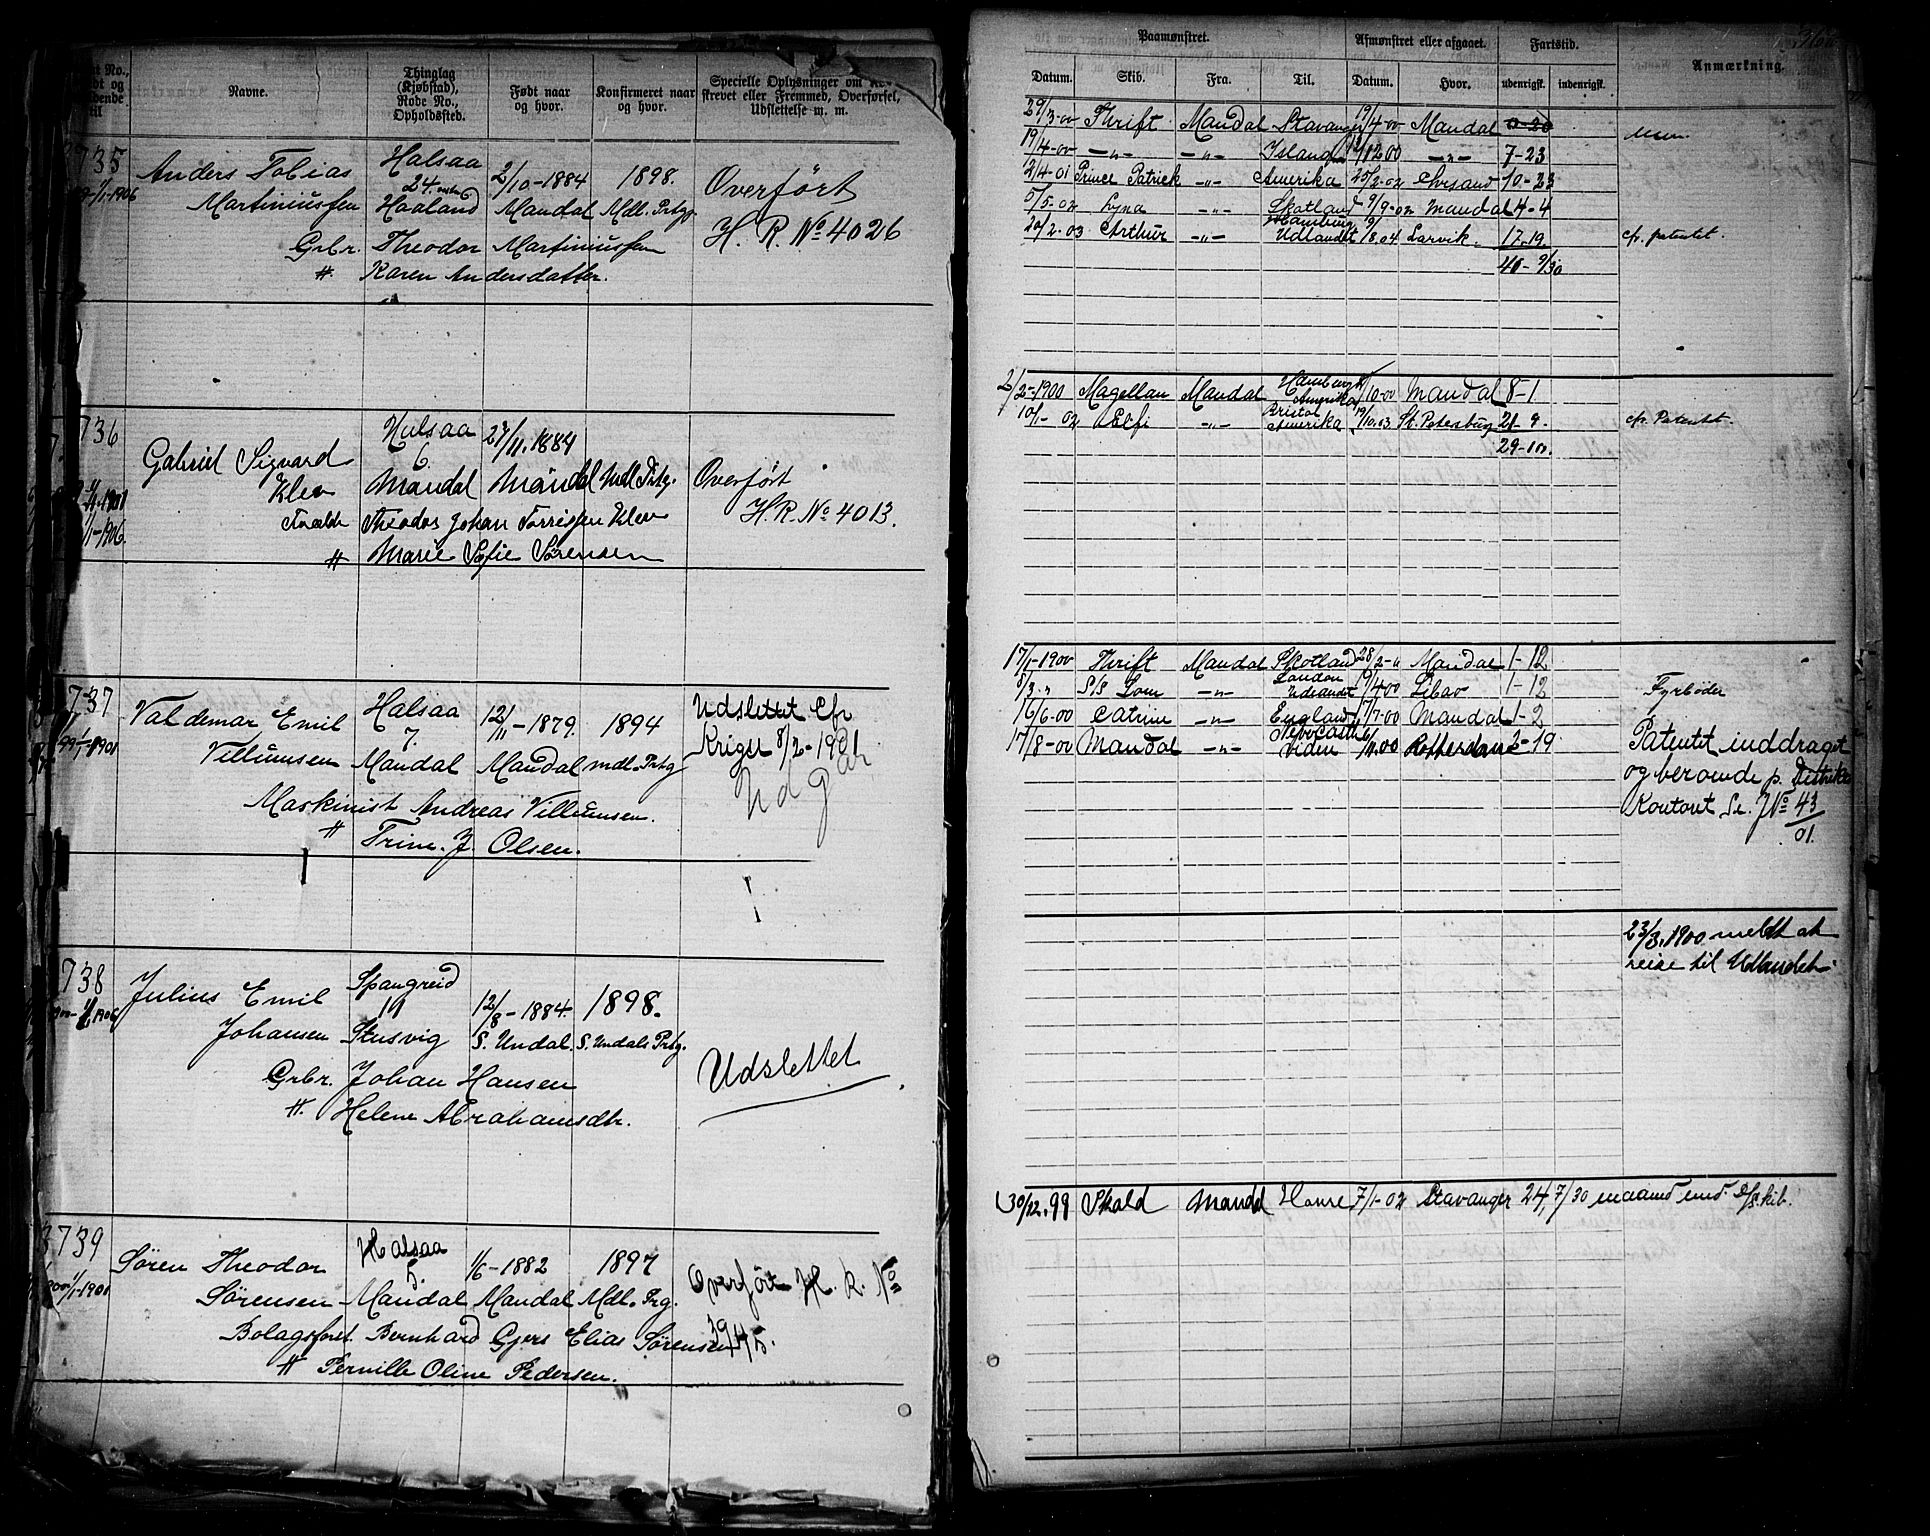 Navne.
Thinglag
(Kjøbstad),
Rode No.,
Opholdssted.
Født naar
og hvor.
Konfirmeret naar
og hvor.
Specielle Oplysninger om
skrevet eller Fremmed, Overførsel,
Udslettelse m. m.
735
Anders Tobias
Martiniussen
Halsaa
24
Haaland
2/10-1884
Mandal
1898.
Mdl. Prtg.
Overført
H. R. No 4026
Grbr. Theodor Martiniussen
" Karen Andersdatter.
736
Gabriel Sigvard
Klev
Halsaa
6.
Mandal
27/11.1884
Mandal
Mdl Prtg.
Overført
H. R. No 4013.
Theodor Johan Torrissen Klev
" Marie Sofie Sørensen
737
Valdemar Emil
Villumsen
Halsaa
7.
Mandal
12/11-1879.
Mandal
1894
mdl. Prtg
Udslettet Cfr
Kriget 8/2-1901
Udgaar
Maskinist Andreas Villumsen.
" Trine. J. Olsen.
738
Julius Emil
Johansen
Spangreid
11
Stusvig
12/8-1884.
S. Undal.
1898.
S. Undals Prtg.
Udslettet
Grbr. Johan Hansen
". Helene Abrahamsdtr.
3739
Søren Theodor
Sørensen
Halsaa
5.
Mandal
1/6-1882
Mandal
1897
Mdl. Prg.
Overført H. R. No
3945.
Bolagsforst. Bernhard Gjers Elias Sørensen
" Pernille Oline Pedersen.
Paamønstret.
Afmønstret eller afgaaet.
Fartstid.
Anmærkning.
Datum.
Skib.
Fra.
Til.
Datum.
Hvor.
udenrigsk.
indenrigsk.
29/3-00 Thrift Mandal Stavanger 19/4-00 Mandal 0-20
19/4-00 -"- -"- Island 12 00 -"- 7-23
12/4-01 Prince Patrick -"- Amerika 25/2-02 Chrsand 10-23
5/5-02 Lyna -"- Skotland 9/9-02 Mandal 4-4
20/2-03 Arthur -"- Hamburg Udlandet 9/8.04 Larvik. 17-19. cfr. patentet.
40-9/30
2/2-1900 Magellan Mandal Hamburg Amerika 10-00 Mandal 8-1
10/1-02 Alfi -"- Bristol Amerika 19/10.03 St. Petersburg 21-9. cfr. Patentet.
29-10.
17/1-1900 Thrift Mandal Skotland 28/2-" Mandal 1-12
8/3 " S/S Lom -"- London Udlandet 19/4 00 Libav 1-12 Fyrbøder
16/6-00 Catrine -"- England 17/7-00 Mandal 1-2
17/8-00 Mandal -"- Newcastle viden 11.00 Rotterdam 2-19
Patentet inddraget
og beroende p. Distrikts
Kontoret Se. J No 43/01.
23/3.1900 meldt at
reise til Udlandet.
30/12.99 Skald Mandal Havre 7/1-02 Stavanger 24, 7/30 maaned med S/skib.